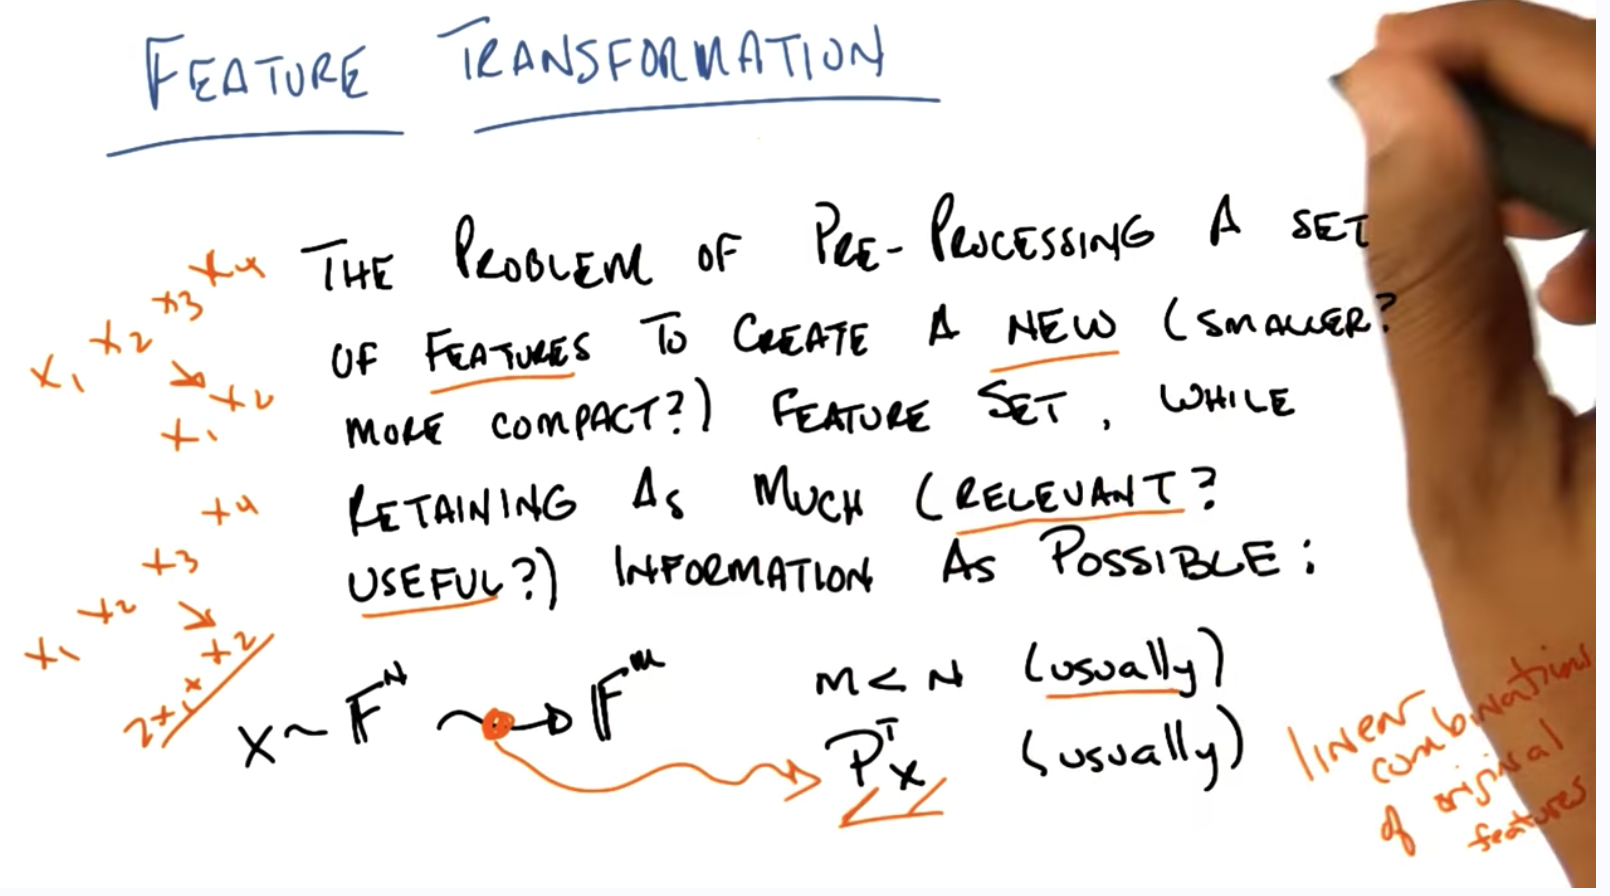 FEATURE TRANSFORMATION
THE PROBLEM OF PRE-PROCESSING A SET
OF FEATURES TO CREATE A NEW (SMALLER?
MORE COMPACT?) FEATURE SET, WHILE
RETAINING AS MUCH (RELEVANT?
USEFUL?) INFORMATION AS POSSIBLE:
x1 x2 x3 x4
x1 x2
x1 x2 x3 x4
2x1+x2
X ~ F^N → F^M
M < N (usually)
P^T x (usually)
linear
combinations
of original
features